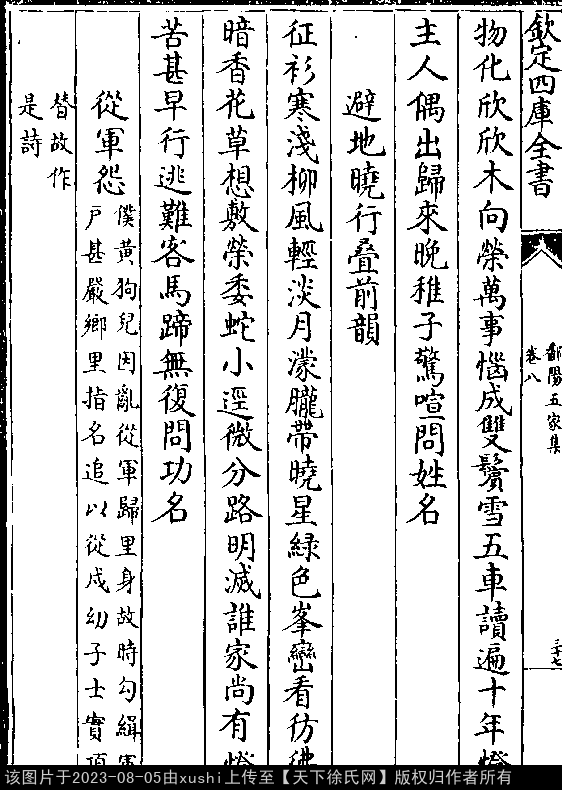 欽定四庫全書
鄱陽五家集
卷八
三十七
物化欣欣木向榮萬事惱成雙鬢雪五車讀遍十年燈
主人偶出歸來晚稚子驚喧問姓名
避地曉行疊前韻
征衫寒淺柳風輕淡月濛朧帶曉星綠色峯巒看彷彿
暗香花草想敷榮委蛇小逕微分路明滅誰家尚有燈
苦甚早行逃難客馬蹄無復問功名
從軍怨
僕黃狗兒因亂從軍歸里身故時勾緝軍
戶甚嚴鄉里指名追以從戍幼子士實頂
替故作
是詩
该图片于2023-08-05由xushi上传至【天下徐氏网】版权归作者所有